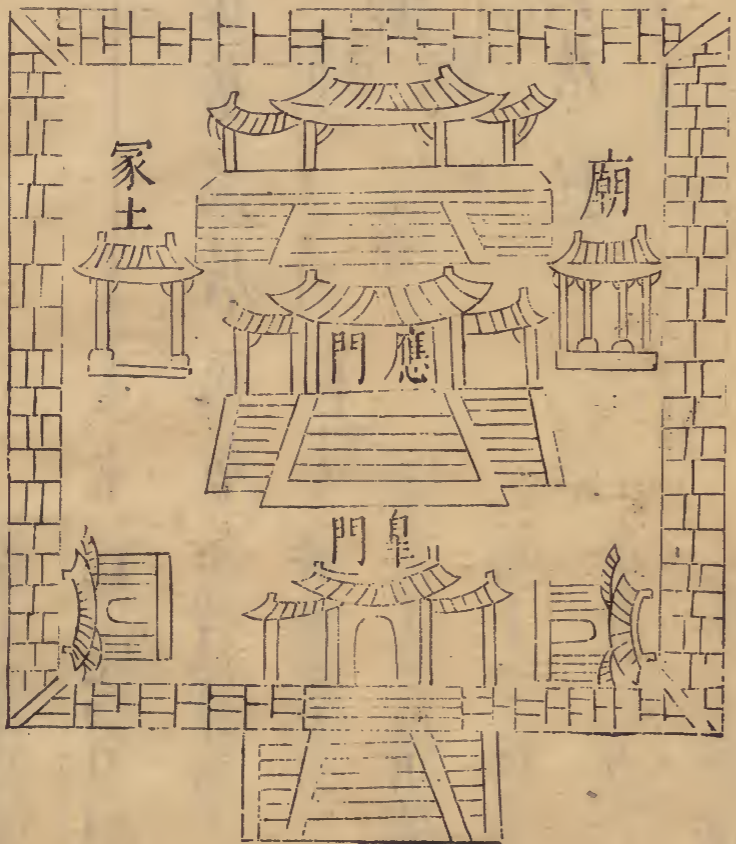 廟
冢土
應門
皐門